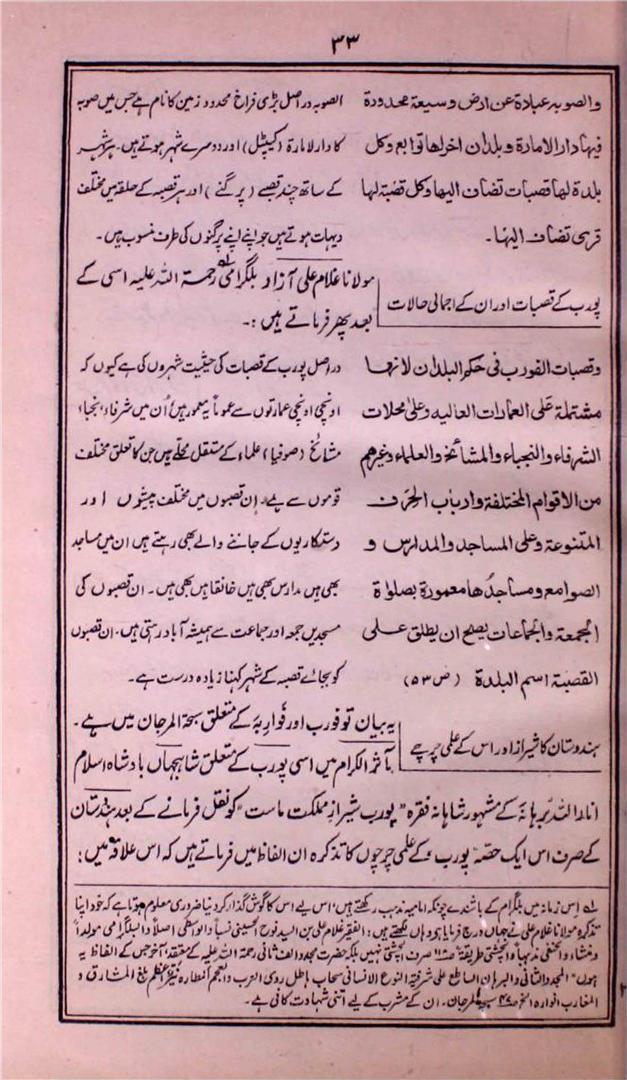 ٣٣
والصوبہ عبادة عن ارض وسیعة محدودة
فیہا دار الامارة و بلدان اخر لہا توابع وکل
بلدة لہا قصبات تضاف الیہا وکل قصبة لہا
قری تضاف الیہا۔
الصوبہ دراصل بڑی فراخ محدود زمین کا نام ہے جس میں صوبہ
کا دارلامارة (کیپٹل) اور دوسرے شہر ہوتے ہیں۔ ہر شہر
کے ساتھ چند قصبے (پرگنے) اور ہر قصبہ کے حلقہ میں مختلف
دیہات ہوتے ہیں جو اپنے اپنے پرگنوں کی طرف منسوب ہیں۔
پورب کے قصبات اور ان کے اجمالی حالات
مولانا غلام علی آزاد بلگرامی؎۱ رحمة اللہ علیہ اسی کے
بعد پھر فرماتے ہیں :۔
وقصبات الفورب فی حکم البلدان لانہا
مشتملة علی العمارات العالیہ وعلیٰ محلات
الشرفاء والنجباء والمشائخ والعلماء وغیرھم
من الاقوام المختلفة وارباب الحِرَف
المتنوعة وعلی المساجد والمدارس و
الصوامع ومساجدُھا معمورة بصلوٰة
الجمعة والجماعات یصلح ان یطلق علی
القصبة اسم البلدة (ص ۵۳)
دراصل پورب کے قصبات کی حیثیت شہروں کی ہے کیوں کہ
اونچی اونچی عمارتوں سے عموماً یہ معمور ہیں، اُن میں شرفاء، نجباء
مشائخ (صوفیا) علماء کے مستقل محلے ہیں جن کا تعلق مختلف
قوموں سے ہے۔ ان قصبوں میں مختلف پیشوں اور
دستکاریوں کے جاننے والے بھی رہتے ہیں ان میں مساجد
بھی ہیں مدارس بھی ہیں خانقاہیں بھی ہیں۔ ان قصبوں کی
مسجدیں جمعہ اور جماعت سے ہمیشہ آباد رہتی ہیں۔ ان قصبوں
کو بجائے قصبہ کے شہر کہنا زیادہ درست ہے۔
ہندوستان کا شیراز اور اس کے علمی چرچے
یہ بیان تو فورب اور فواربہ کے متعلق سبحة المرجان میں ہے۔
مآثر الکرام میں اسی پورب کے متعلق شاہجہاں بادشاہ اسلام
انار اللہ برہانہٗ کے مشہور شاہانہ فقرہ "پورب شیراز مملکت ماست" کو نقل فرمانے کے بعد ہندستان
کے صرف اس ایک حصہ "پورب" کے علمی چرچوں کا تذکرہ ان الفاظ میں فرماتے ہیں کہ اس علاقہ میں:
؎۱ اس زمانہ میں بلگرام کے باشندے چونکہ امامیہ مذہب رکھتے ہیں، اس لیے اس کا گوش گذار کر دینا ضروری معلوم ہوتا ہے کہ خود اپنا
تذکرہ مولانا غلام علی نے جہاں درج فرمایا ہے وہاں لکھتے ہیں: الفقیر غلام علی بن السید نوح الحسینی نسباً والواسطی اصلاً والبلگرامی مولداً
ومنشاءً والحنفی مذہباً والچشتی طریقةً صرف چشتی نہیں بلکہ حضرت مجدد الف ثانی رحمة اللہ علیہ کے معتقد آخر جس کے الفاظ یہ
ہوں "المجدد الثانی والبرہان الساطع علی شرفیة النوع الانسانی سحاب ہاطل روی العرب والعجم امطارہ نیّر اعظم بلغ المشارق و
المغارب انوارہ الخ ص ۴۷ سبحة المرجان۔ ان کے مشرب کے لیے اتنی شہادت کافی ہے۔